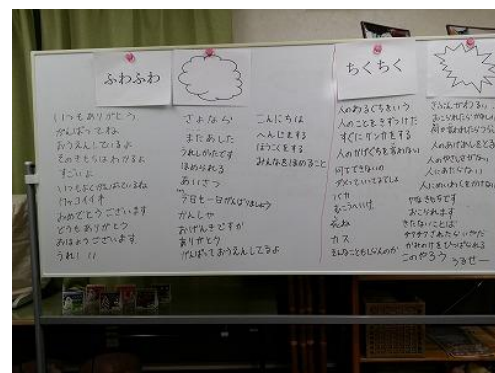 ふわふわ
いつもありがとう
がんばってね
おうえんしているよ
そのきもちはわかるよ
すごいよ
いつもよくがんばっているね
カッコイイネ
おめでとうございます
どうもありがとう
おはようございます
うれしい
さよなら
またあした
うれしかったです
ほめられる
あいさつ
今日も一日がんばりましょう
かんしゃ
おげんきですか
ありがとう
がんばっておうえんしてるよ
こんにちは
へんじをする
ほうこくをする
みんなをほめること
ちくちく
人のわるぐちをいう
人のことをきずつけた
すぐにケンカをする
人のかげぐちを言わない
何でできないの
ダメっていってるでしょ
バカ
むこうへいけ
死ね
カス
そんなこともしらんのか
きぶんがわるい
人にあたらない
人にめいわくをかけない
いやなきもちです
おこられます
きたないことば
チクチクされたらいやだ
かみのけをひっぱられる
このやろう うるせー